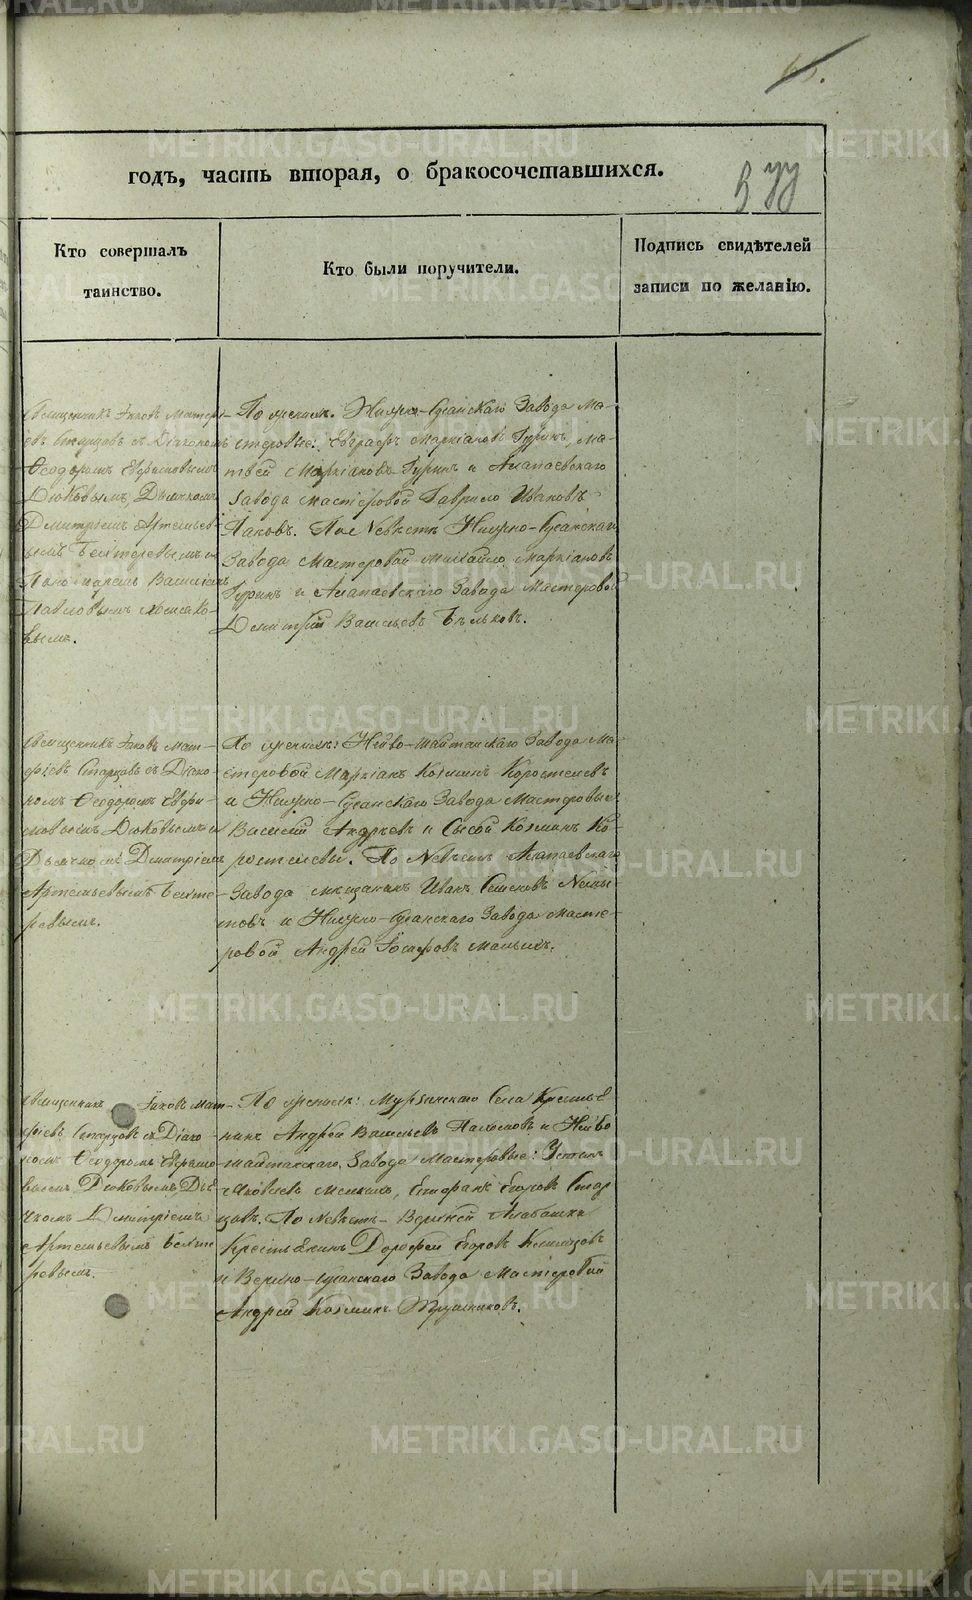 годъ, часть вторая, о бракосочетавшихся.
377
Кто совершалъ
таинство.
Кто были поручители.
Подпись свидѣтелей
записи по желанію.
Священникъ Іаковъ Матѳі-
евъ Старцовъ съ Діакономъ
Ѳеодоромъ Ефримовымъ
Дюковымъ, Дьячкомъ
Дмитріемъ Артемьев-
ымъ Бехтеревымъ и
Пономаремъ Василіемъ
Павловымъ
вымъ.
По женихѣ: Нижне-Сусанскаго Завода Ма-
стеровые: Евграфъ Маркіановъ Гуринъ, Ма-
твей Маркіановъ Гуринъ и Алапаевскаго
Завода мастеровой Гаврило Ивановъ
Паковъ. По Невѣстѣ Нижно-Сусанскаго
Завода Мастеровой Михайло Маркіановъ
Гуринъ и Алапаевскаго Завода Мастеровой
Дмитрій Васильевъ Бѣльковъ.
Священникъ Іаковъ Мат-
ѳіевъ Старцовъ съ Діако-
номъ Ѳеодоромъ Ефри-
мовымъ Дюковымъ и
Дьячкомъ Дмитріемъ
Артемьевымъ Бехте-
ревымъ.
По женихѣ: Нейво-Шайтанскаго Завода Ма-
стеровой Маркіанъ Козминъ Коростелевъ
и Нижно-Сусанскаго Завода Мастеровые
Василій Андреевъ и Сысой Козминъ Ко-
ростелевы. По Невѣстѣ Алапаевскаго
Завода мещанинъ Иванъ
и Нижно-Сусанскаго Завода масте-
ровой Андрей Іосифовъ Малыхъ.
Священникъ Іаковъ Мат-
ѳіевъ Старцовъ съ Діако-
номъ Ѳеодоромъ Ефримо-
вымъ Дюковымъ Дья-
чкомъ Дмитріемъ
Артемьевымъ Бехте
ревымъ.
По женихѣ: Мурзинскаго Села Крестья-
нинъ Андрей Васильевъ Пахомовъ и Нейво
шайтанскаго Завода Мастеровые: Устинъ
Яковлевъ Епифанъ Егоровъ Стар
цовъ. По Невѣстѣ- Верхней Алабашки
Крестьянинъ Дорофей Егоровъ
и Верхно-Сусанскаго Завода Мастеровой
Андрей Козминъ Трушниковъ.
METRIKI.GASO-URAL.RU